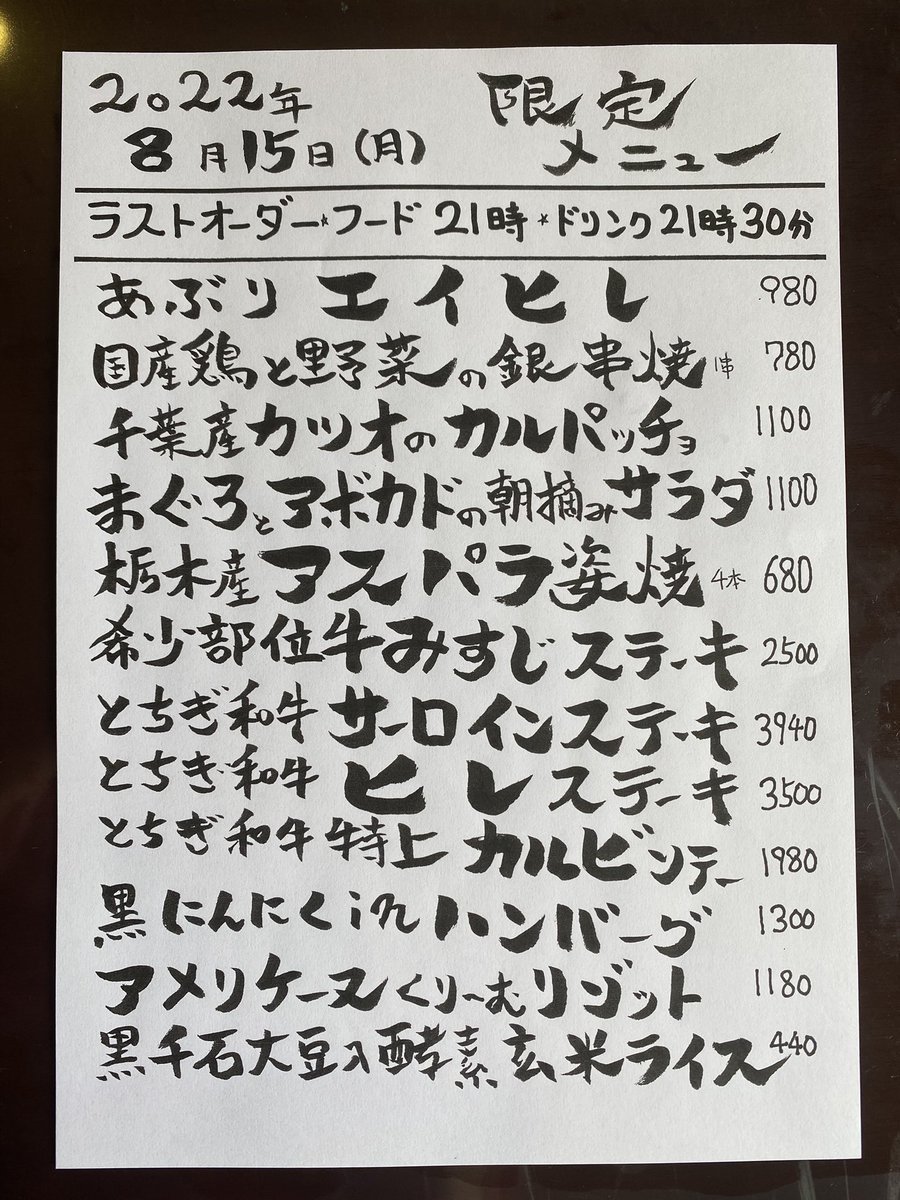 2022年
8月15日(月)
限定
メニュー
ラストオーダー*フード 21時 *ドリンク21時30分
あぶり エイヒレ 980
国産鶏と野菜の銀串焼 1串 780
千葉産カツオのカルパッチョ 1100
まぐろとアボカドの朝摘みサラダ 1100
栃木産アスパラ姿焼 4本 680
希少部位牛みすじステーキ 2500
とちぎ和牛サーロインステーキ 3940
とちぎ和牛ヒレステーキ 3500
とちぎ和牛特上カルビソテー 1980
黒にんにくinハンバーグ 1300
アメリケーヌくりーむリゾット 1180
黒千石大豆入酵素玄米ライス 440